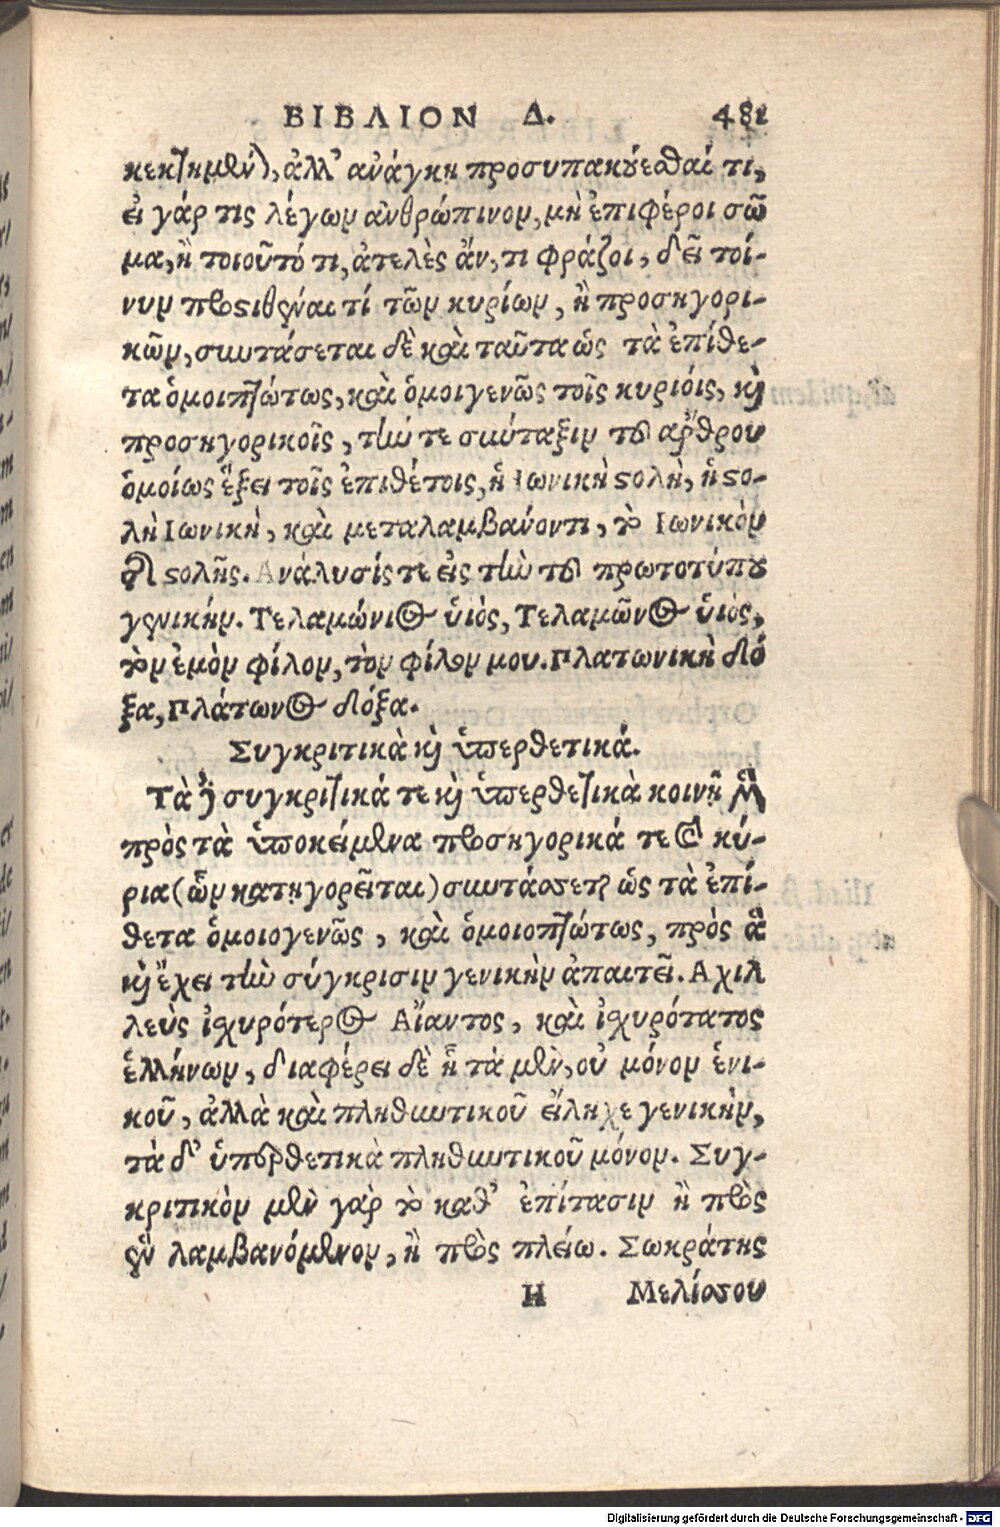 ΒΙΒΛΙΟΝ Δ. 481
κεκτημένου, ἀλλ' ἀνάγκη προσυπακούεσθαί τι,
εἰ γάρ τις λέγων ἀνθρώπινον, μὴ ἐπιφέροι σῶ
μα, ἢ τοιοῦτό τι, ἀτελὲς ἄν, τι φράζοι, δεῖ τοί-
νυν προστιθέναι τί τῶν κυρίων, ἢ προσηγορι-
κῶν, συντάσεται δὲ καὶ ταῦτα ὡς τὰ ἐπίθε-
τα ὁμοιπτώτως, καὶ ὁμοιγενῶς τοῖς κυριόις, καὶ
προσηγορικοῖς, τὴν τε σύνταξιν τοῦ ἄρθρου
ὁμοίως ἕξει τοῖς ἐπιθέτοις, ἡ Ἰωνικὴ στολὴ, ἡ στο-
λὴ Ιωνικὴ, καὶ μεταλαμβάνοντι, τὸ Ιωνικὸν
τῆς στολῆς. Ανάλυσίς τε εἰς τὴν τοῦ πρωτοτύπου
γενικήν. Τελαμώνιος ὑιὸς, Τελαμῶνος ὑιὸς,
τὸν ἐμὸν φίλον, τὸν φίλον μου. Πλατωνικὴ δό
ξα, Πλάτωνος δόξα.
Συγκριτικὰ καὶ ὑπερθετικά.
Τὰ δὲ συγκριτικά τε καὶ ὑπερθετικὰ κοινῇ μὲν
πρὸς τὰ ὑποκείμενα προσηγορικά τε καὶ κύ-
ρια (ὧν κατηγορεῖται) συντάσσεται ὡς τὰ ἐπί-
θετα ὁμοιογενῶς, καὶ ὁμοιοπτώτως, πρὸς ἃ
καὶ ἔχει τὴν σύγκρισιν γενικὴν ἀπαιτεῖ. Αχιλ
λεὺς ἰσχυρότερος Αἴαντος, καὶ ἰσχυρότατος
ἑλλήνων, διαφέρει δὲ ᾗ τὰ μὲν, οὐ μόνον ἑνι-
κοῦ, ἀλλὰ καὶ πληθυντικοῦ εἴληχε γενικὴν,
τὰ δ' ὑπερθετικὰ πληθυντικοῦ μόνον. Συγ-
κριτικὸν μὲν γὰρ τὸ καθ' ἐπίτασιν ἢ πρὸς
ἓν λαμβανόμενον, ἢ πρὸς πλείω. Σωκράτης
H Μελίσσου
Digitalisierung gefördert durch die Deutsche Forschungsgemeinschaft - DFG